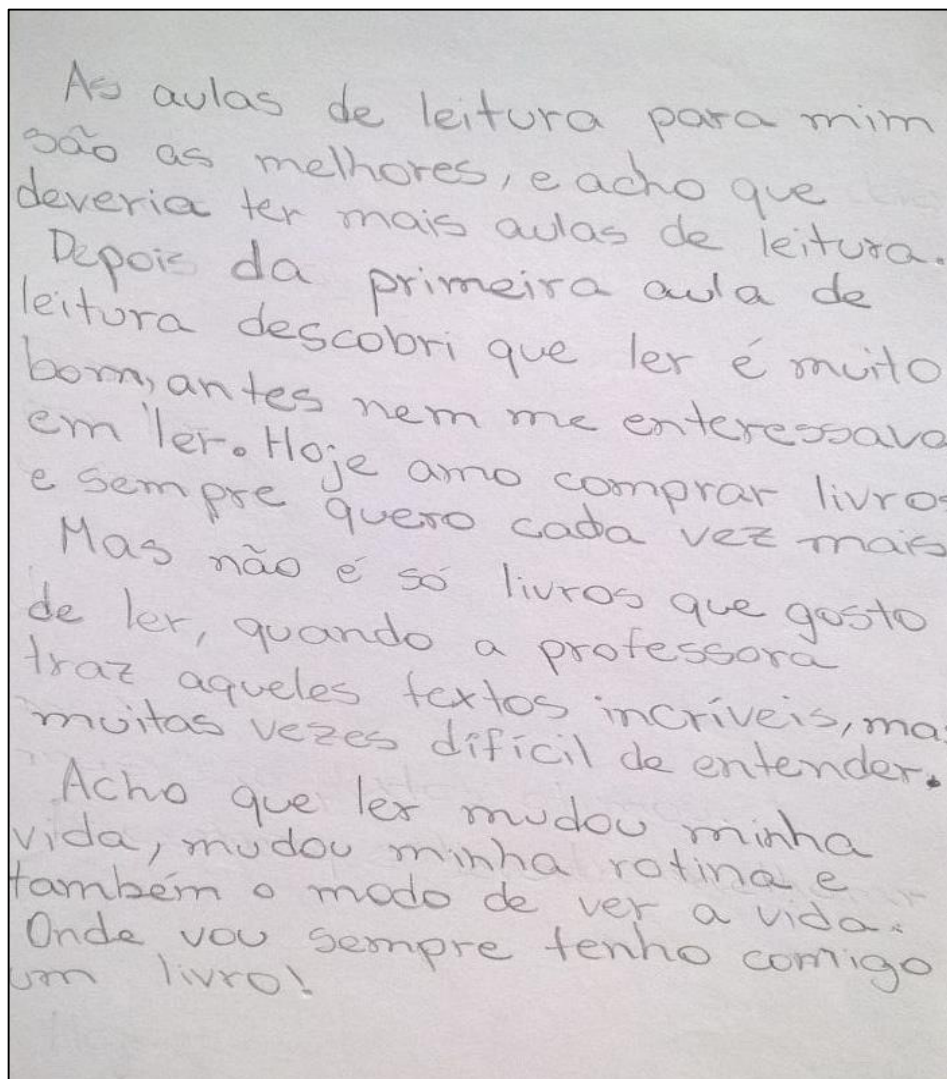 As aulas de leitura para mim
são as melhores, e acho que
deveria ter mais aulas de leitura.
Depois da primeira aula de
leitura descobri que ler é muito
bom, antes nem me enteressava
em ler. Hoje amo comprar livros
e sempre quero cada vez mais
Mas não é só livros que gosto
de ler, quando a professora
traz aqueles textos incríveis, mas
muitas vezes difícil de entender.
Acho que ler mudou minha
vida, mudou minha rotina e
também o modo de ver a vida.
Onde vou sempre tenho comigo
um livro!